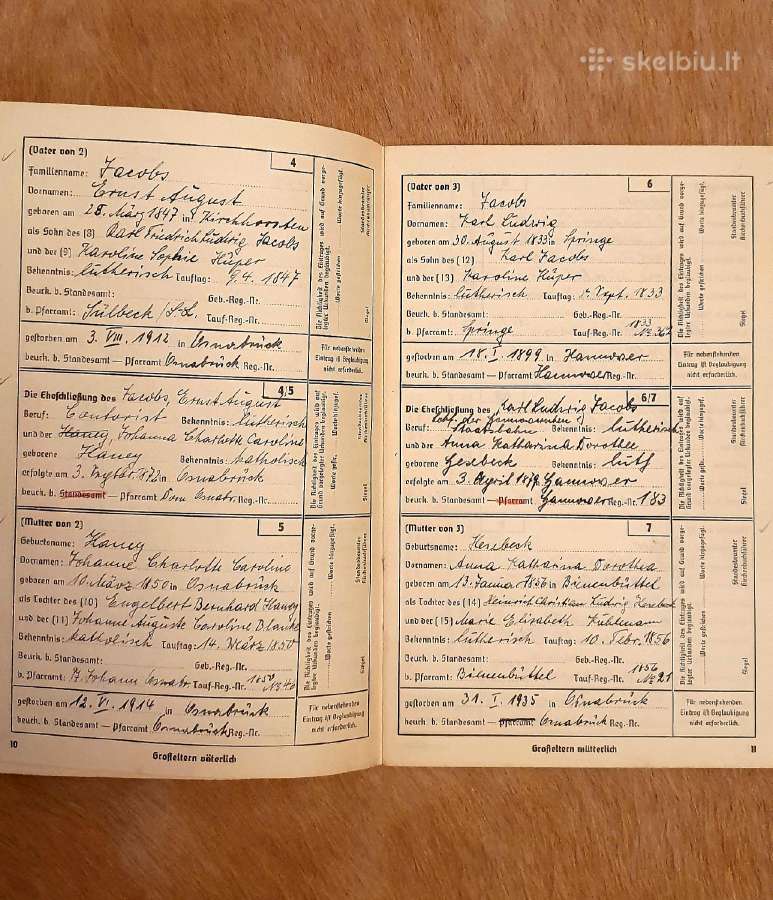 skelbiu.lt
(Vater von 2) 4
Familienname: Jacobs
Vornamen: Ernst August
geboren am 28. März 1847 in Kirchhorsten
als Sohn des (8) Karl Friedrich Ludwig Jacobs
und der (9) Karoline Sophie Küper
Bekenntnis: lutherisch Tauftag: 9.4.1847
Beurk. b. Standesamt: Geb.-Reg.-Nr.
b. Pfarramt: Sülbeck Tauf-Reg.-Nr.
gestorben am 3. VIII. 1912 in Osnabrück
beurk. b. Standesamt — Pfarramt Osnabrück Reg.-Nr.
Die Richtigkeit des Eintrages wird auf Grund vorge-
legter Urkunden beglaubigt. Worte gestrichen Worte hinzugefügt.
Siegel
Für nebenstehenden
Eintrag ist Beglaubigung
nicht erforderlich.
Die Eheschließung des Jacobs, Ernst August 4/5
Beruf: Contorist Bekenntnis: lutherisch
und der Haney, Johanna Charlotte Caroline
geborene Haney Bekenntnis: katholisch
erfolgte am 3. 1872 in Osnabrück
beurk. b. Standesamt — Pfarramt Dom Osnabr. Reg.-Nr.
(Mutter von 2) 5
Geburtsname: Haney
Vornamen: Johanne Charlotte Caroline
geboren am 10. März 1850 in Osnabrück
als Tochter des (10) Engelbert Bernhard Haney
und der (11) Johanne Auguste Caroline Blanke
Bekenntnis: katholisch Tauftag: 14. März 1850
Beurk. b. Standesamt: Geb.-Reg.-Nr.
b. Pfarramt: St. Johann Osnabr. Tauf-Reg.-Nr. 1850 No 40
gestorben am 12. VI. 1914 in Osnabrück
beurk. b. Standesamt — Pfarramt Osnabrück Reg.-Nr.
Für nebenstehenden
Eintrag ist Beglaubigung
nicht erforderlich.
10
Großeltern väterlich
(Vater von 3) 6
Familienname: Jacobs
Vornamen: Karl Ludwig
geboren am 30. August 1833 in Springe
als Sohn des (12) Karl Jacobs
und der (13) Karoline Küper
Bekenntnis: lutherisch Tauftag Sept. 1833
Beurk. b. Standesamt: Geb.-Reg.-Nr.
b. Pfarramt: Springe Tauf-Reg.-Nr. 1833
gestorben am 18. I. 1899 in Hannover
beurk. b. Standesamt — Pfarramt Hannover Reg.-Nr.
Für nebenstehenden
Eintrag ist Beglaubigung
nicht erforderlich.
Die Eheschließung des Karl Ludwig Jacobs 6/7
Beruf: Staatsbahn Bekenntnis: lutherisch
und der Anna Katharina Dorothee
geborene Gesebeck Bekenntnis: luth
erfolgte am 3. April Hannover
beurk. b. Standesamt — Pfarramt Hannover Reg.-Nr. 183
(Mutter von 3) 7
Geburtsname:
Vornamen: Anna Katharina Dorothea
geboren am 13. Januar 1856 in Bienenbüttel
als Tochter des (14) Heinrich Christian Ludwig
und der (15) Marie Elisabeth Kuhlmann
Bekenntnis: lutherisch Tauftag: 10. Febr. 1856
Beurk. b. Standesamt: Geb.-Reg.-Nr.
b. Pfarramt: Bienenbüttel Tauf-Reg.-Nr. 1856 No 21
gestorben am 31. I. 1935 in Osnabrück
beurk. b. Standesamt — Pfarramt Osnabrück Reg.-Nr.
Für nebenstehenden
Eintrag ist Beglaubigung
nicht erforderlich.
Großeltern mütterlich
11